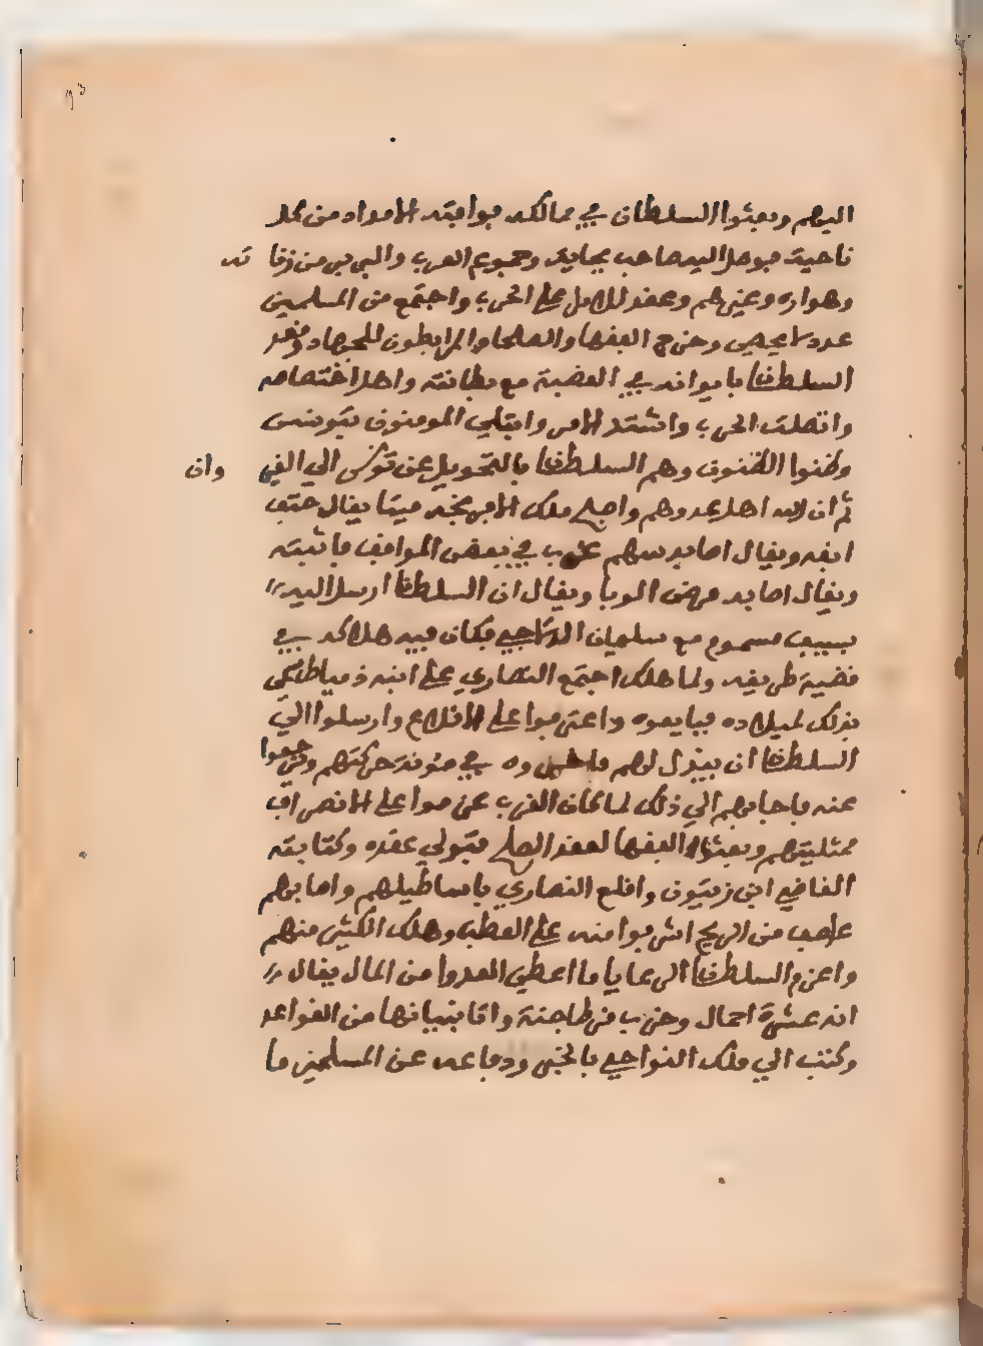 اليهم وبعثوا السلطان في ممالكه فوافته الامداد من كل
ناحية فوصل اليه صاحب بجاية وجموع العرب والبربر من زناتة
وهواره وغيرهم وعقد للكل على الحرب واجتمع من المسلمين
عدد لا يحصى وخرج الفقها والصلحا والمرابطون للجهاد وقعد
السلطان بايوانه في القصبة مع بطانته واهل اختصاصه
واتصلت الحرب واشتد الامر وابتلي المومنون بتونس
وظنوا الظنون وهم السلطان بالتحويل عن تونس الي القيروان
ثم ان الله اهلك عدوهم واصبح ملك الافرنجة ميتا يقال حتف
انفه ويقال اصابه سهم غرب في بعض المواقف فاثبته
ويقال اصابه مرض الوبا ويقال ان السلطان ارسل اليه
بسيف مسموم مع سليمان الدلاجي فكان فيه هلاكه في
قضية طريفه ولما هلك اجتمع النصاري على ابنه دمياط سمي
بذلك لميلاده فبايعوه واعتزموا على الاقلاع وارسلوا الي
السلطان ان يبذل لهم ما وه في مئونة حركتهم ويرجعوا
عنه فاجابهم الي ذلك لما كان العرب عزموا على الانصراف
لمشاتيهم وبعث الفقها لعقد الصلح فتولي عقده وكتابته
القاضي ابن زيتون واقلع النصاري باساطيلهم واصابهم
عاصف من الريح اشرفوا منه على العطب وهلك الكثير منهم
واغرم السلطان الرعايا ما اعطي العدوا من المال يقال
انه عشرة احمال وخرب قرطاجنة واتا بنيانها من القواعد
وكتب الي ملك النواحي بالخبر ودفاعه عن المسلمين ما